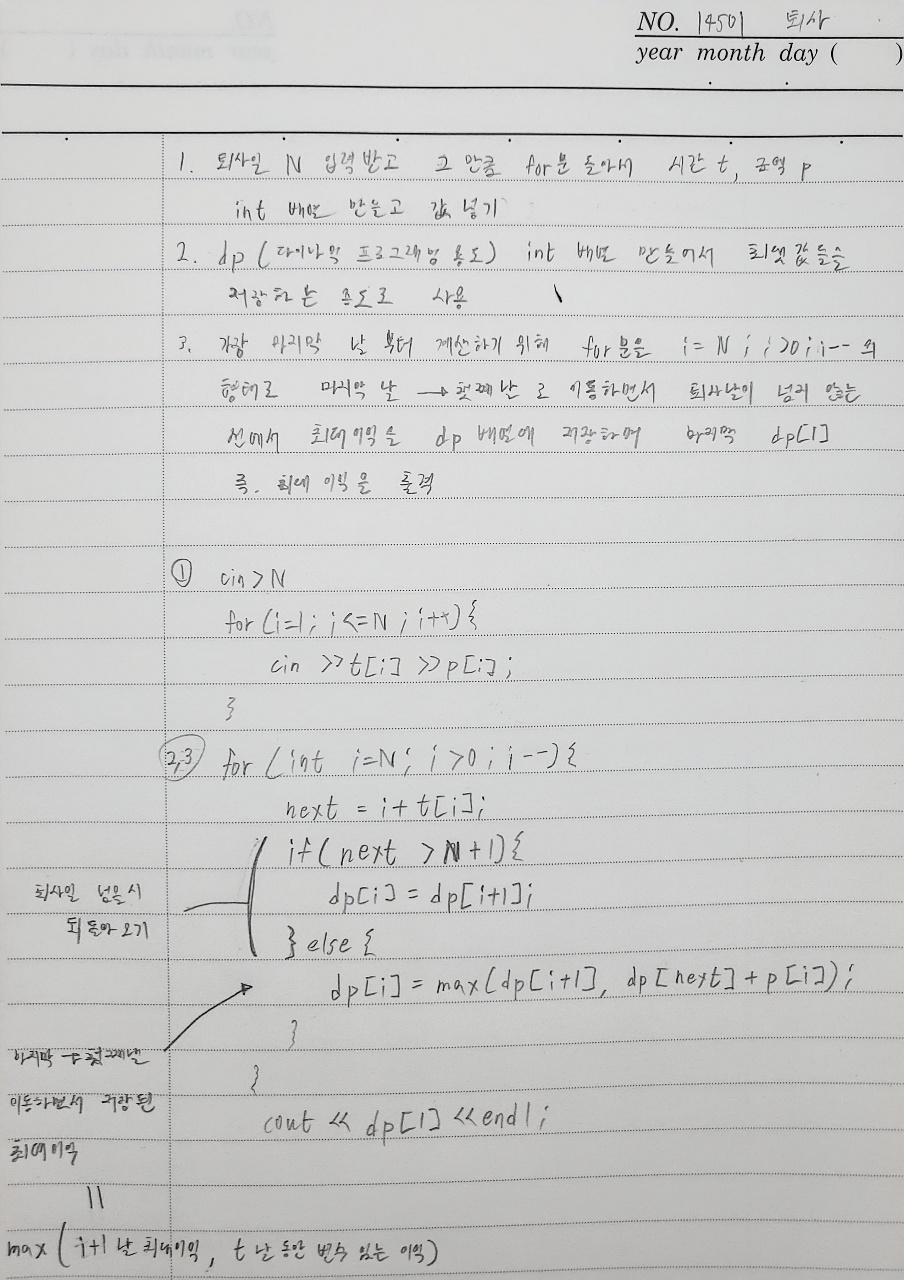 NO. 14501 퇴사
year month day ( )
1. 퇴사일 N 입력받고 그 만큼 for문 돌아서 시간 t, 금액 p
int 배열 만들고 값 넣기
2. dp (다이나믹 프로그래밍 용도) int 배열 만들어서 최댓값들을
저장하는 용도로 사용
3. 가장 마지막 날 부터 계산하기 위해 for문을 i = N ; i >0 ; i-- 의
형태로 마지막 날 → 첫째 날 로 이동하면서 퇴사날이 넘지 않는
선에서 최대이익을 dp 배열에 저장하며 마지막 dp[1]
즉. 최대 이익을 출력
① cin > N
for (i=1; i<=N ; i++) {
cin >> t[i] >> p[i];
}
2,3 for (int i=N; i >0 ; i--) {
next = i + t[i];
if (next > N+1) {
퇴사일 넘을시 dp[i] = dp[i+1];
되돌아오기
} else {
dp[i] = max(dp[i+1], dp[next] + p[i]);
}
마지막 → 첫째날
}
이동하면서 저장된
cout << dp[1] << endl;
최대이익
||
max ( i+1 날 최대이익, t 날 동안 벌수 있는 이익)